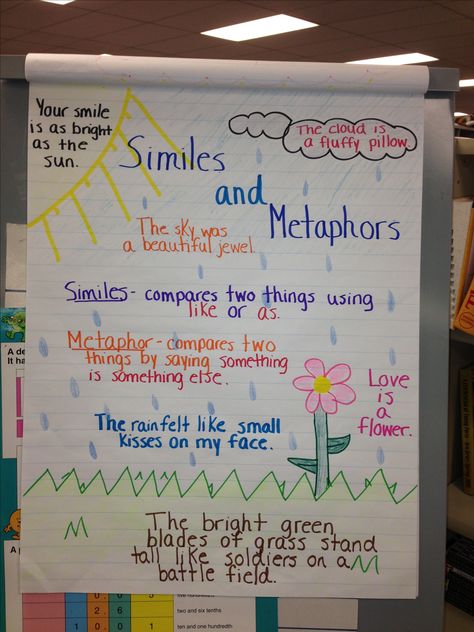 Your smile
is as bright
as the
sun.
The cloud is
a fluffy pillow.
Similes
and
Metaphors
The sky was
a beautiful jewel.
Similes - compares two things using
like or as.
Metaphor - compares two
things by saying something
is something else.
Love
is
a
flower.
The rain felt like small
kisses on my face.
The bright green
blades of grass stand
tall like soldiers on a
battle field.
A de
It ha
A p
It
2 6
two and six tenths
ten and one hundredth